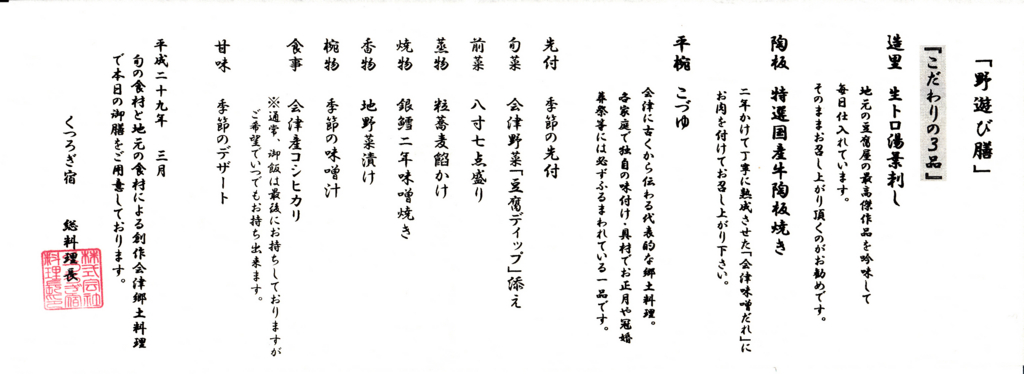 「野遊び膳」
『こだわりの3品』
造里　生トロ湯葉刺し
地元の豆腐屋の最高傑作品を吟味して
毎日仕入れています。
そのままお召し上がり頂くのがお勧めです。
陶板　特選国産牛陶板焼き
二年かけて丁寧に熟成させた「会津味噌だれ」に
お肉を付けてお召し上がり下さい。
平椀　こづゆ
会津に古くから伝わる代表的な郷土料理。
各家庭で独自の味付け・具材でお正月や冠婚
葬祭等には必ずふるまわれている一品です。
先付　季節の先付
旬菜　会津野菜「豆腐ディップ」添え
前菜　八寸七点盛り
蒸物　粒蕎麦餡かけ
焼物　銀鱈二年味噌焼き
香物　地野菜漬け
椀物　季節の味噌汁
食事　会津産コシヒカリ
※通常、御飯は最後にお持ちしておりますが
ご希望でいつでもお持ち出来ます。
甘味　季節のデザート
平成二十九年　三月
旬の食材と地元の食材による創作会津郷土料理
で本日の御膳をご用意しております。
くつろぎ宿　総料理長
株式会社
料理長